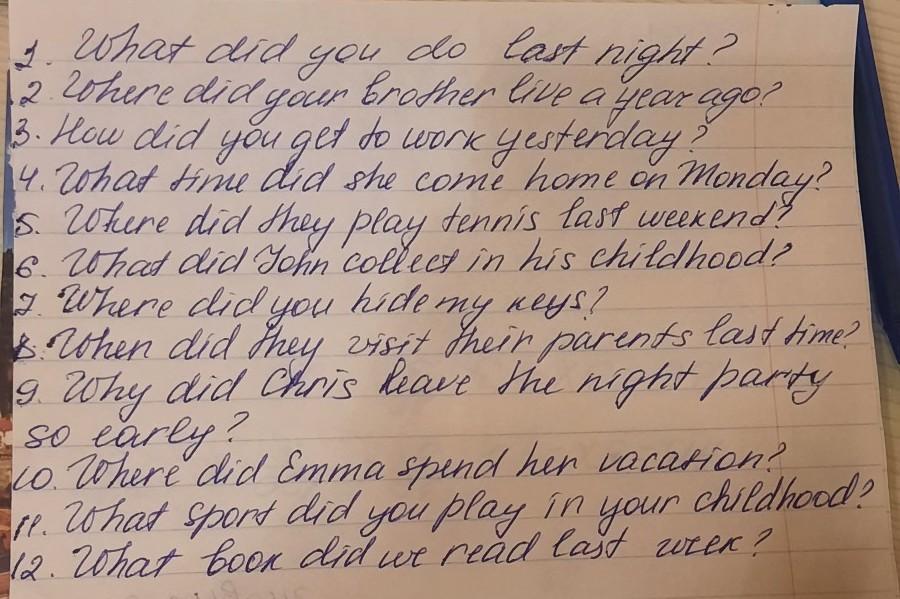 1. What did you do last night?
2. Where did your brother live a year ago?
3. How did you get to work yesterday?
4. What time did she come home on Monday?
5. Where did they play tennis last weekend?
6. What did John collect in his childhood?
7. Where did you hide my keys?
8. When did they visit their parents last time?
9. Why did Chris leave the night party
so early?
10. Where did Emma spend her vacation?
11. What sport did you play in your childhood?
12. What book did we read last week?